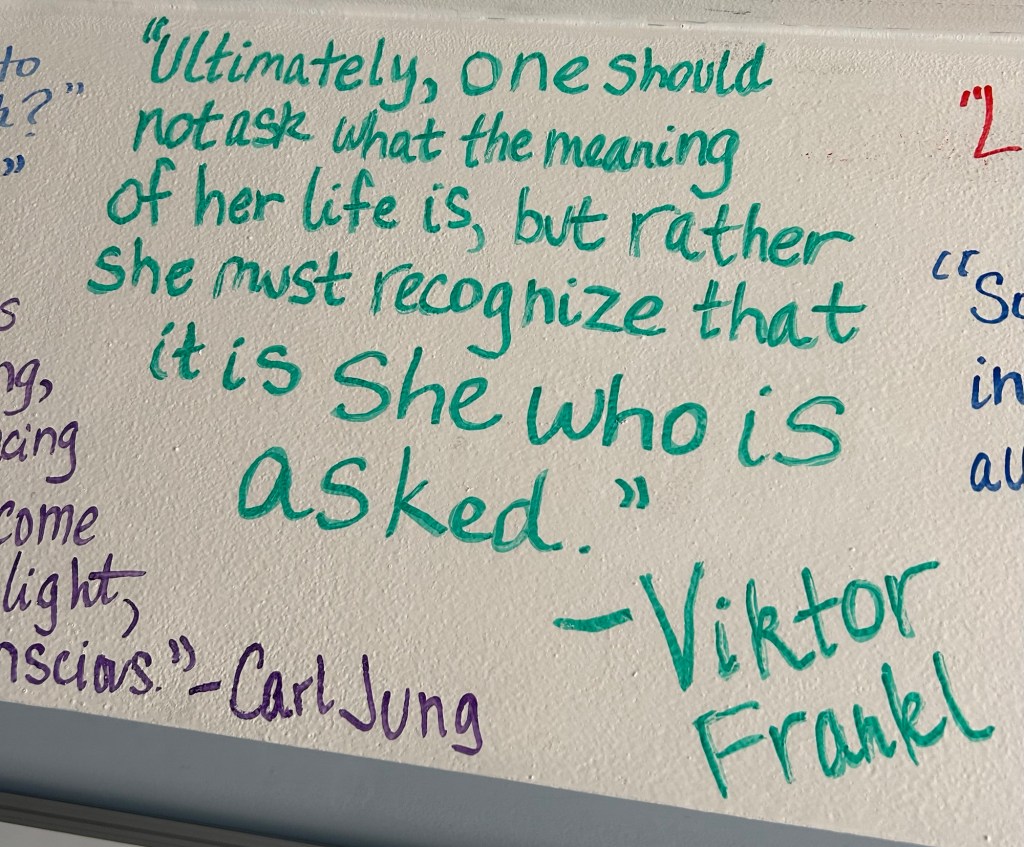 "Ultimately, one should
not ask what the meaning
of her life is, but rather
she must recognize that
it is She who is
asked."
-Viktor
Frankl
to
?"
"
s
ng,
cing
come
light,
nscious." -Carl Jung
"L
"So
in
au